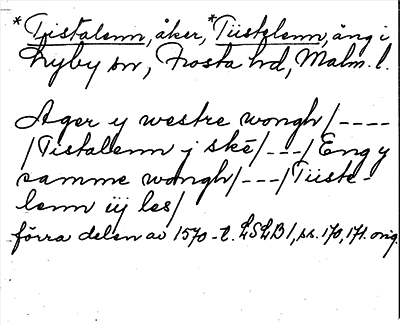 *Tistalenn, åker, *Tiistelenn, äng i
Lyby sn, Frosta hd, Malm. l.
Ager y westre wongh/----
/Tistalenn j ske/---/Eng y
samme wongh/---/Tiiste-
lenn iij les/
förra delen av 1570-t. LSLB 1, ss. 170, 171. orig.